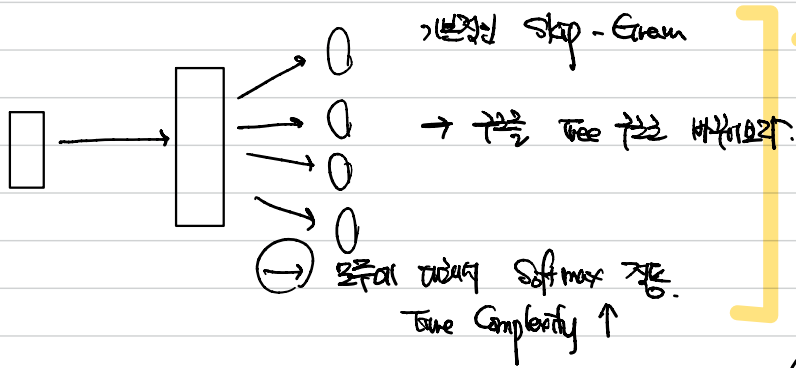 기본적인 Skip-Gram
→ 구조를 Tree 구조로 바꿔보라.
→ 모두에 대해서 Softmax 적용.
Time Complexity ↑